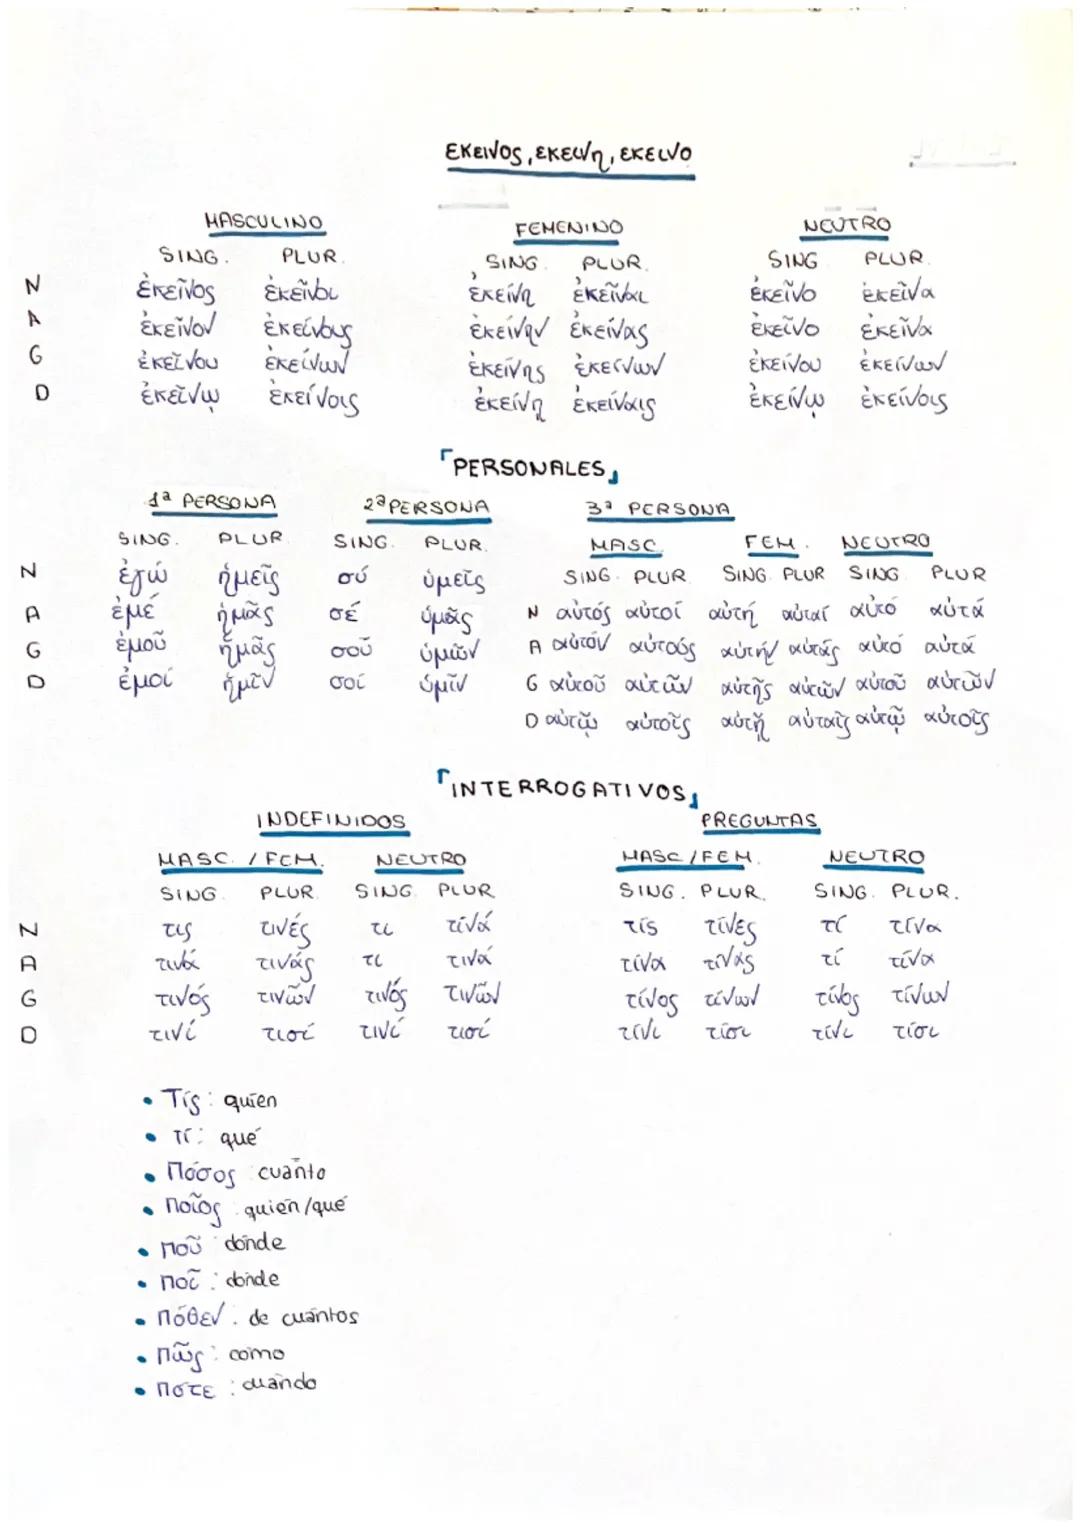 εκεινος, εκεινη, εκεινο
MASCULINO FEMENINO NEUTRO
SING. PLUR. SING. PLUR. SING PLUR.
N ἐκεῖνος ἐκεῖνοι ἐκείνη ἐκεῖναι ἐκεῖνο ἐκεῖνα
A ἐκεῖνον ἐκείνους ἐκείνην ἐκείνας ἐκεῖνο ἐκεῖνα
G ἐκεῖνου ἐκείνων ἐκείνης ἐκείνων ἐκείνου ἐκείνων
D ἐκεῖνῳ ἐκείνοις ἐκείνῃ ἐκείναις ἐκείνῳ ἐκείνοις
「PERSONALES」
1ª PERSONA 2ª PERSONA 3ª PERSONA
MASC. FEM. NEUTRO
SING. PLUR. SING. PLUR. SING. PLUR. SING. PLUR SING. PLUR
N ἐγώ ἡμεῖς σύ ὑμεῖς N αὐτός αὐτοί αὐτή αὐταί αὐτό αὐτά
A ἐμέ ἡμᾶς σέ ὑμᾶς A αὐτόν αὐτούς αὐτήν αὐτάς αὐτό αὐτά
G ἐμοῦ ἡμᾶς σοῦ ὑμῶν G αὐτοῦ αὐτῶν αὐτῆς αὐτῶν αὐτοῦ αὐτῶν
D ἐμοί ἡμῖν σοί ὑμῖν D αὐτῷ αὐτοῖς αὐτῇ αὐταῖς αὐτῷ αὐτοῖς
「INTERROGATIVOS」
INDEFINIDOS PREGUNTAS
MASC. / FEM. NEUTRO MASC / FEM. NEUTRO
SING. PLUR. SING. PLUR SING. PLUR. SING. PLUR.
N τις τινές τι τίνά τίς τίνες τί τίνα
A τινά τινάς τι τινά τίνα τίνάς τί τίνα
G τινός τινῶν τινός τινῶν τίνος τίνων τίνος τίνων
D τινί τισί τινί τισί τίνι τίσι τίνι τίσι
• Τίς: quién
• τί: qué
• Πόσος: cuánto
• Ποῖος: quién/qué
• Ποῦ: dónde
• Ποῖ: dónde
• Πόθεν: de cuántos
• Πῶς: cómo
• Πότε: cuándo